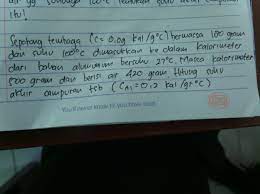 air yg 100°C
itu!
Sepotong tembaga (c = 0,09 kal/g°C) bermassa 180 gram
dan suhu 100°C dimasukkan ke dalam kalorimeter
dari bahan alumunium bersuhu 27°C. Massa kalorimeter
500 gram dan berisi air 420 gram. Hitung suhu
akhir campuran tsb (CAl = 0,2 kal/gr°C)